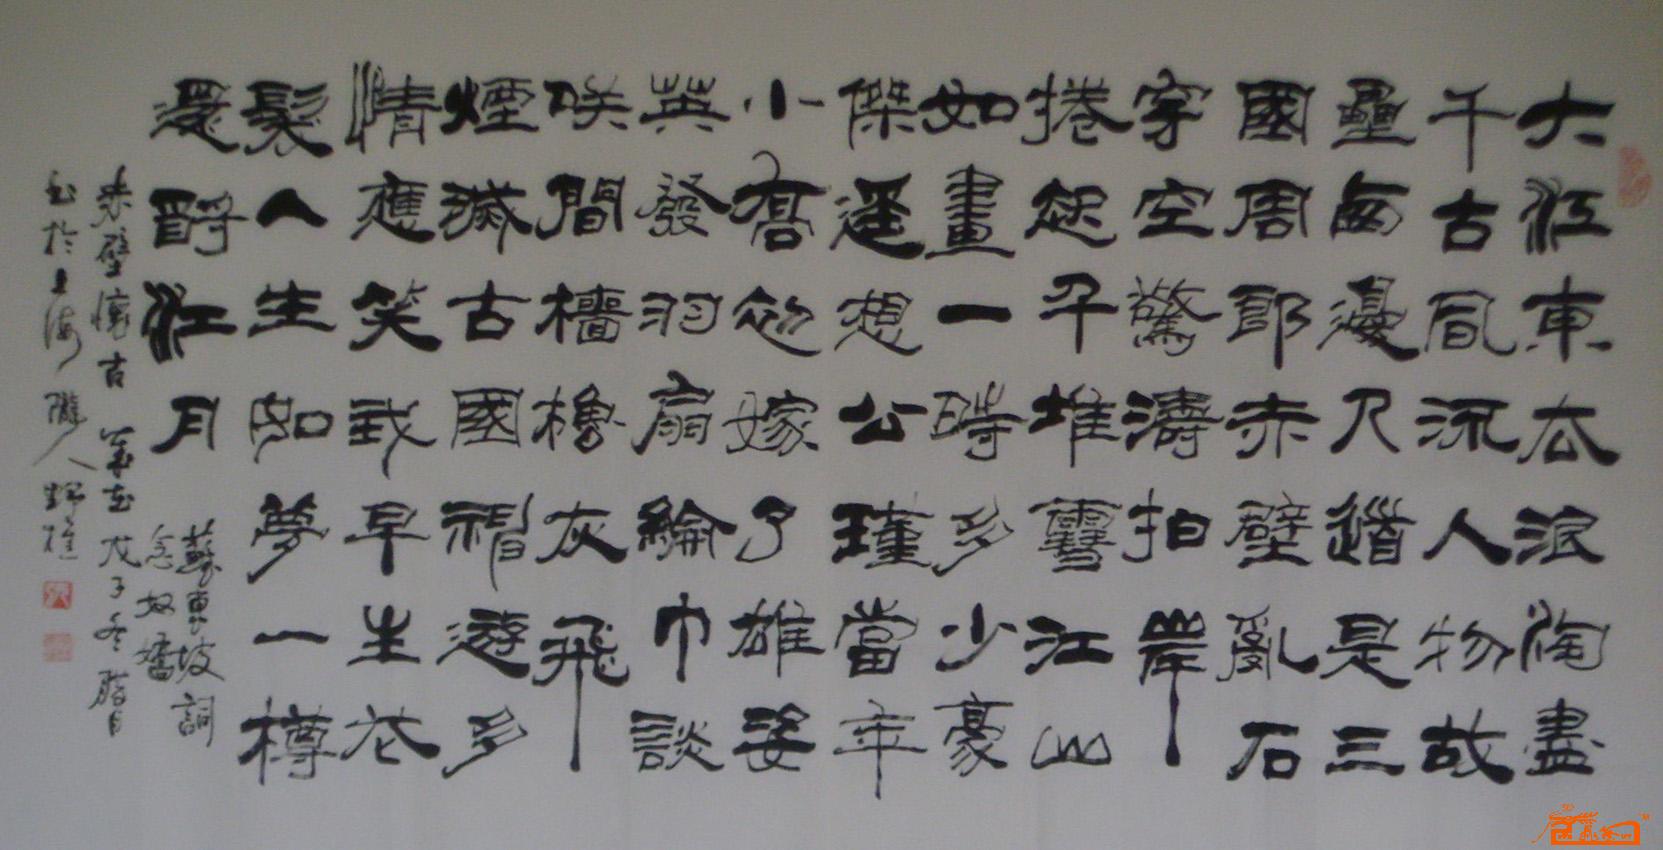 大江東去浪淘盡
千古風流人物故
壘西邊人道是三
國周郎赤壁亂石
穿空驚濤拍岸
捲起千堆雪江山
如畫一時多少豪
傑遥想公瑾當年
小喬初嫁了雄姿
英發羽扇綸巾談
咲間檣櫓灰飛
煙滅古國神遊多
情應笑我早生花
髮人生如夢一樽
還酹江月
蘇東坡詞
念奴嬌
赤壁懷古 戊子冬腊月
書於上海 隴人